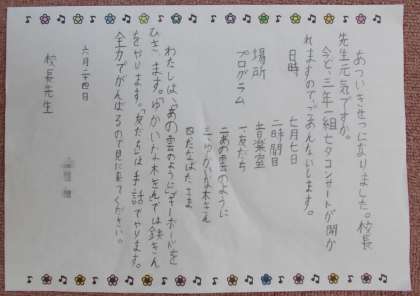 あついきせつになりました。校長
先生元気ですか。
今ど、三年一組七夕コンサートが開か
れますので、ごあんないします。
日時　七月七日
二時間目
場所　音楽室
プログラム　一友だち
二あの雲のように
三ゆかいな木きん
四たなばたさま
わたしは、「あの雲のように」でキーボードを
ひきます。「ゆかいな木きん」では鉄きん
をやります。「友だち」は手話でやります。
全力でがんばるので見に来てください。
六月二十四日
校長先生